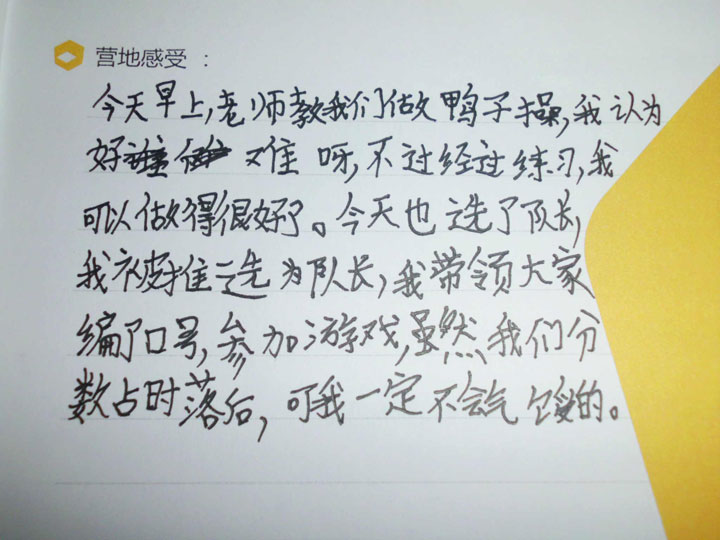 营地感受：
今天早上,老师教我们做鸭子操,我认为
好难呀,不过经过练习,我
可以做得很好了。今天也选了队长,
我被推选为队长,我带领大家
编了口号,参加游戏,虽然我们分
数占时落后,可我一定不会气馁的。